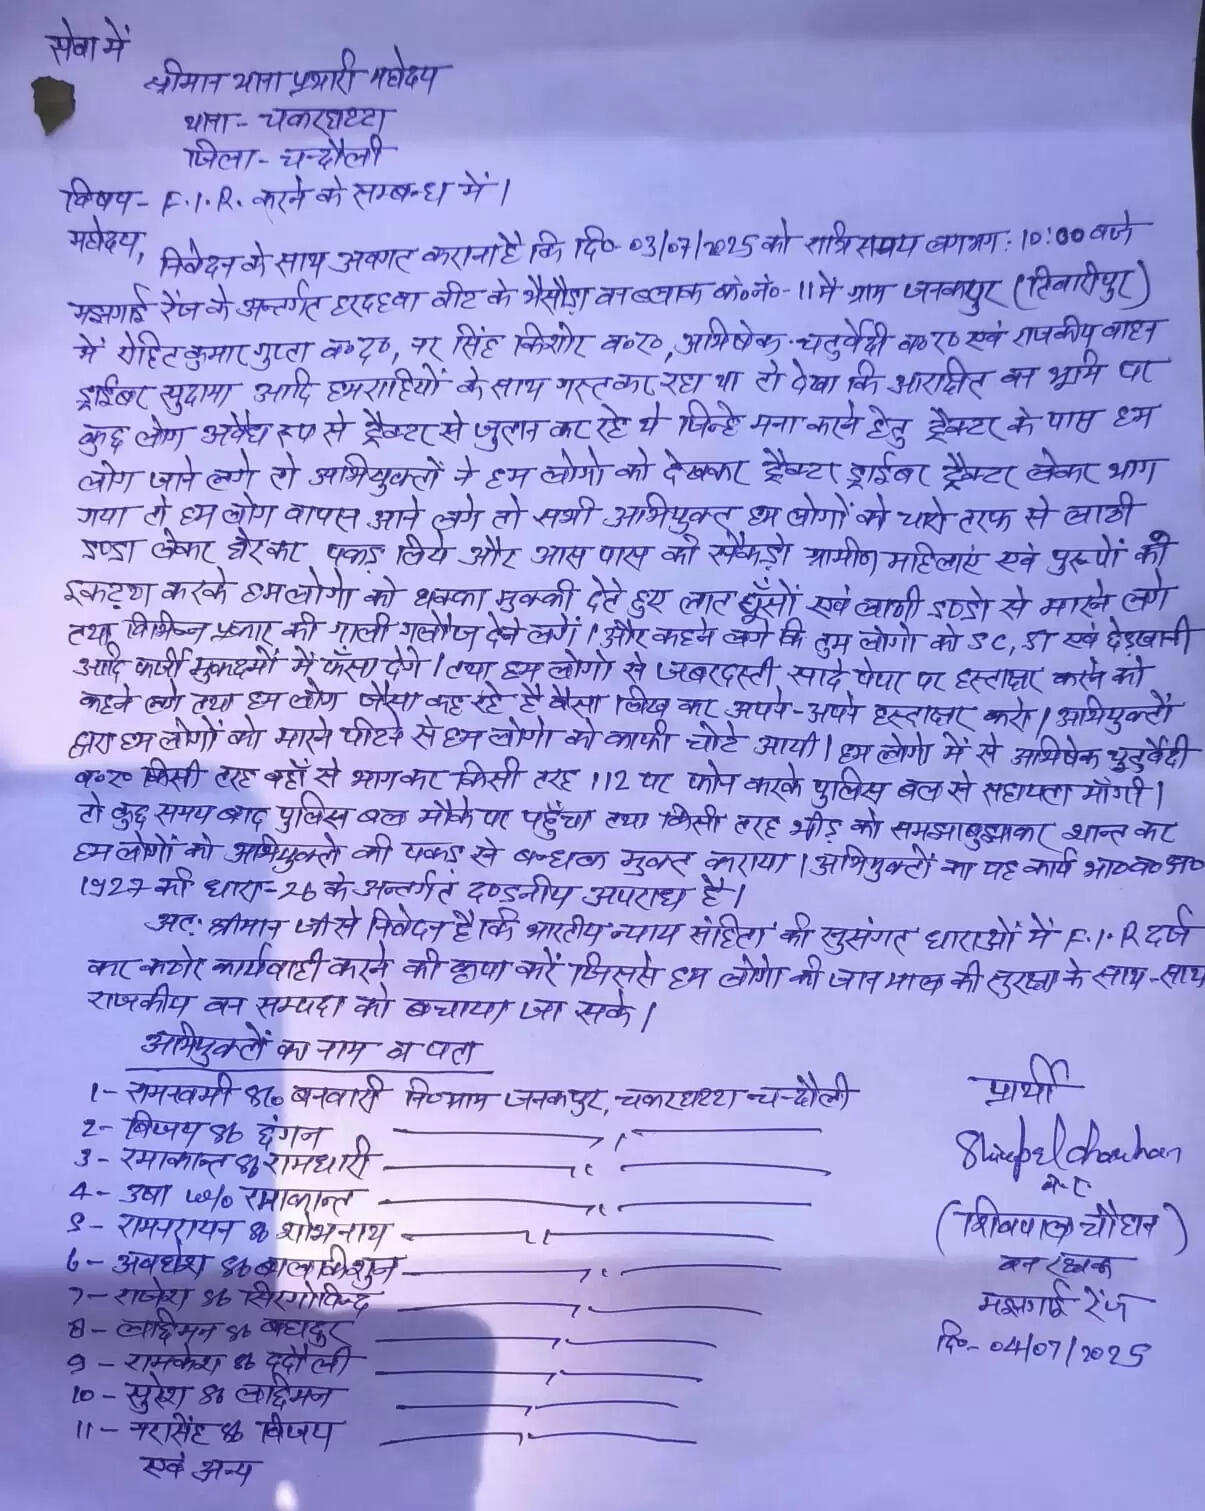 सेवा में
श्रीमान थाना प्रभारी महोदय
थाना - चकरघट्टा
जिला - चन्दौली
विषय - F.I.R. करने के सम्बन्ध में।
महोदय,
निवेदन के साथ अवगत कराना है कि दि० 03/07/2025 को रात्रि समय लगभग : 10:00 बजे
मझगाई रेंज के अन्तर्गत हरदहवा वीट के भैसौड़ा वन ब्लाक क०न०-11 मे ग्राम जनकपुर (तिवारीपुर)
में रोहित कुमार गुप्ता व०द०, नर सिंह किशोर व०र०, अभिषेक चतुर्वेदी व०र० एवं राजकीय वाहन
ड्राईबर सुदामा आदि हमराहियों के साथ गस्त कर रहा था तो देखा कि आरक्षित वन भूमि पर
कुछ लोग अवैध रूप से ट्रैक्टर से जुतान कर रहे थे जिन्हे मना करने हेतु ट्रैक्टर के पास हम
लोग जाने लगे तो अभियुक्तों ने हम लोगो को देखकर ट्रैक्टर ड्राईबर ट्रैक्टर लेकर भाग
गया तो हम लोग वापस आने लगे तो सभी अभियुक्त हम लोगों को चारो तरफ से लाठी
डण्डा लेकर घेरकर पकड़ लिये और आस पास की सैकड़ो ग्रामीण महिलाएं एवं पुरूषों को
इकट्ठा करके हम लोगो को धक्का मुक्की देते हुए लात घूँसों एवं लाठी डण्डो से मारने लगे
तथा विभिन्न प्रकार की गाली गलौज देने लगें। और कहने लगे कि तुम लोगो को SC, ST एवं छेड़खानी
आदि फर्जी मुकदमों में फँसा देगे। तथा हम लोगो से जबरदस्ती सादे पेपर पर हस्ताक्षर करने को
कहने लगे तथा हम लोग जैसा कह रहे है वैसा लिख कर अपने-अपने हस्ताक्षर करो। अभियुक्तों
द्वारा हम लोगों को मारने पीटने से हम लोगो को काफी चोटे आयी। हम लोगो में से अभिषेक चतुर्वेदी
व०र० किसी तरह वहाँ से भागकर किसी तरह 112 पर फोन करके पुलिस बल से सहायता माँगी।
तो कुछ समय बाद पुलिस बल मौके पर पहुँचा तथा किसी तरह भीड़ को समझा बुझाकर शान्त कर
हम लोगों को अभियुक्तो की पकड़ से बन्धक मुक्त कराया। अभियुक्तों का यह कार्य भा०व०अ०
1927 की धारा-26 के अन्तर्गत दण्डनीय अपराध है।
अतः श्रीमान जी से निवेदन है कि भारतीय न्याय संहिता की सुसंगत धाराओं में F.I.R दर्ज
कर कठोर कार्यवाही करने की कृपा करें जिससे हम लोगो की जान माल की सुरक्षा के साथ-साथ
राजकीय वन सम्पदा को बचाया जा सके।
अभियुक्तों का नाम व पता
1- रामनवमी S/o बनवारी नि०ग्राम जनकपुर, चकरघट्टा चन्दौली
2- विजय S/o छंगन
3- रमाकान्त S/o रामधारी
4- उषा w/o रमाकान्त
5- रामनरायन S/o शोभनाथ
6- अवधेश S/o बालकिशुन
7- राजेश S/o सिरगोविन्द
8- लछिमन S/o बहादुर
9- रामकेश S/o ददौली
10- सुरेश S/o लछिमन
11- नरसिंह S/o विजय
एवं अन्य
प्रार्थी
Shivpal Chauhan
व.र
(शिवपाल चौहान)
वन रक्षक
मझगाई रेंज
दि०- 04/07/2025